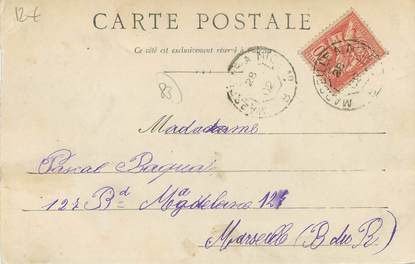 12€
CARTE POSTALE
Ce côté est exclusivement réservé à
MARSEILLE A
28
02
83
Madadame
Pascal
127 Bd Magdeleine 127
Marseille (B du R.)